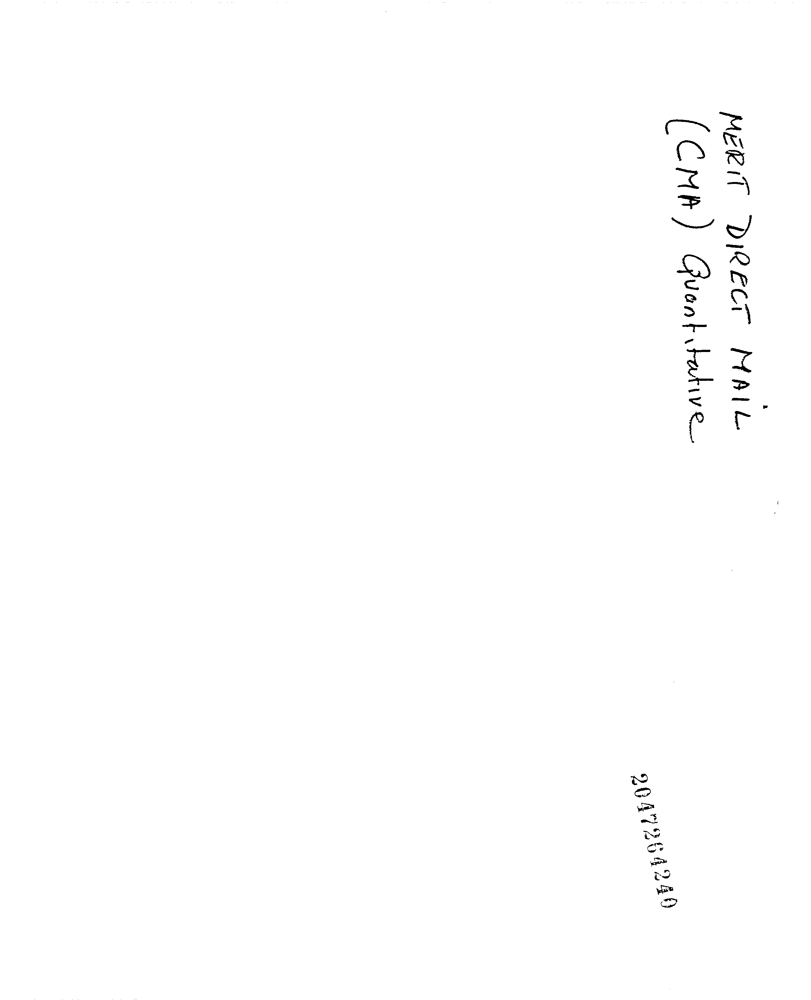 MERIT DIRECT MAIL
(CMA) Quantitative
2047264240